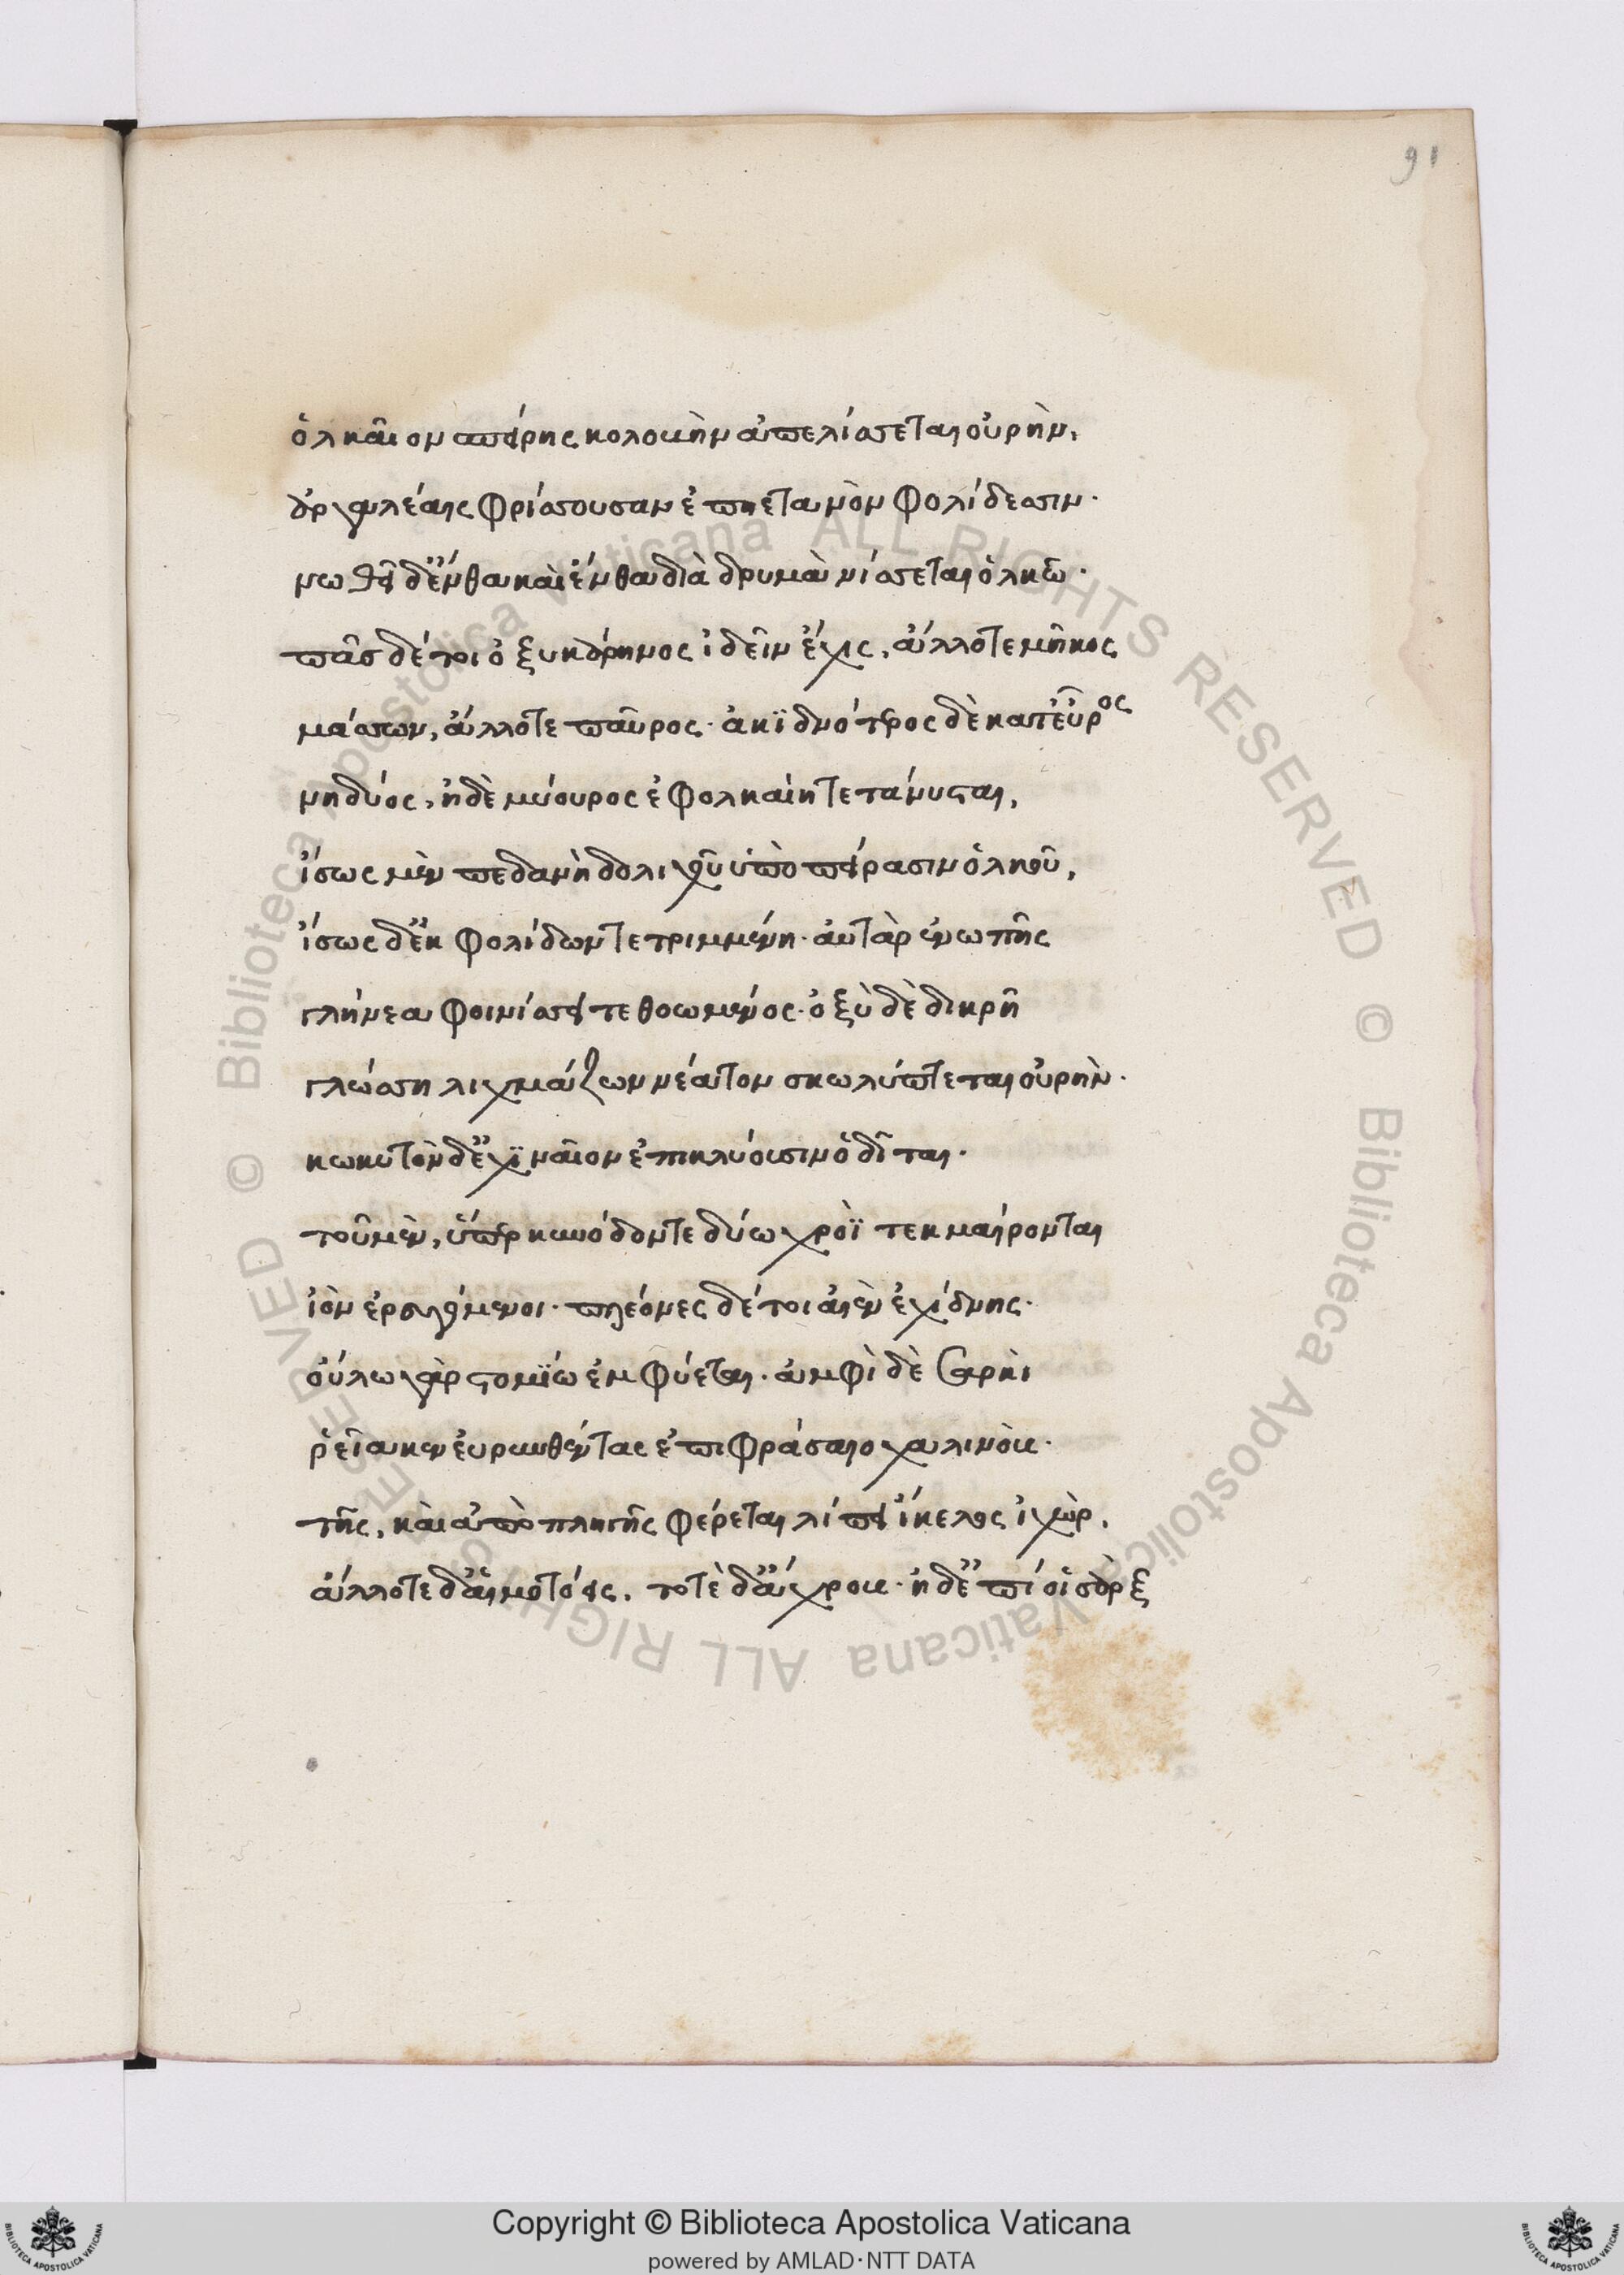 91
ὁλκαῖον σπείρης κολοιὴν ἀπελίσσεται οὐρὴν,
ἀρχαλέαις φρίσσουσαν ἐπηετανὸν φολίδεσσιν·
νωθεῖ δ' ἔνθα καὶ ἔνθα διὰ δρυμὰ νίσσεται ὁλκῶ·
πᾶσ δέ τοι ὀξυκάρηνος ἰδεῖν ἔχις, ἄλλοτε μῆκος
μάσσων, ἄλλοτε παῦρος· ἀκϊδνότερος δὲ κατ' εὖρος
νηδύος, ἡ δὲ μύουρος ἐφολκαίη τετάνυσται,
ἴσως μὲν πεδανὴ δολιχοῦ ὑπὸ πείρασιν ὁλκοῦ,
ἴσως δ' ἐκ φολίδων τετριμμένη· αὐτὰρ ἐνωπῆς
γλήνεα φοινίσσει τεθοωμένος· ὀξὺ δὲ δικρῆ
γλώσση λιχμάζων νέατον σκωλύπτεται οὐρὴν·
κωκυτὸν δ' ἐχϊναῖον ἐπικλύοισιν ὁδῖται·
τοῦ μὲν, ὑπὲρ κυνόδοντε δύω χροῒ τεκμαίρονται
ἰὸν ἐρευγόμενοι· πλέονες δέ τοι αἰὲν ἐχίδνης·
οὔλω γὰρ στομΐω ἐμφύεται· ἀμφὶ δὲ σαρκὶ
ῥεῖα κεν εὐρυνθέντας ἐπιφράσαιο χαλινοὺς·
τῆς, καὶ ἀπὸ πληγῆς φέρεται λίπει ἴκελος ἰχὼρ,
ἄλλοτε δ' αἱματόεις, τοτὲ δ' ἄχροος· ἡ δ' ἐπί οἱ σὰρξ
Copyright © Biblioteca Apostolica Vaticana
powered by AMLAD·NTT DATA